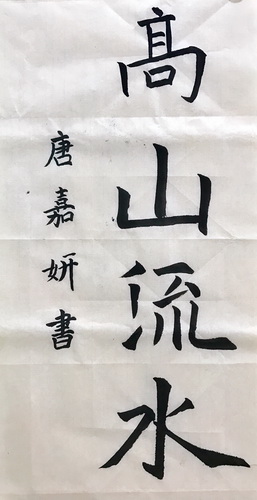 高山流水
唐嘉妍書